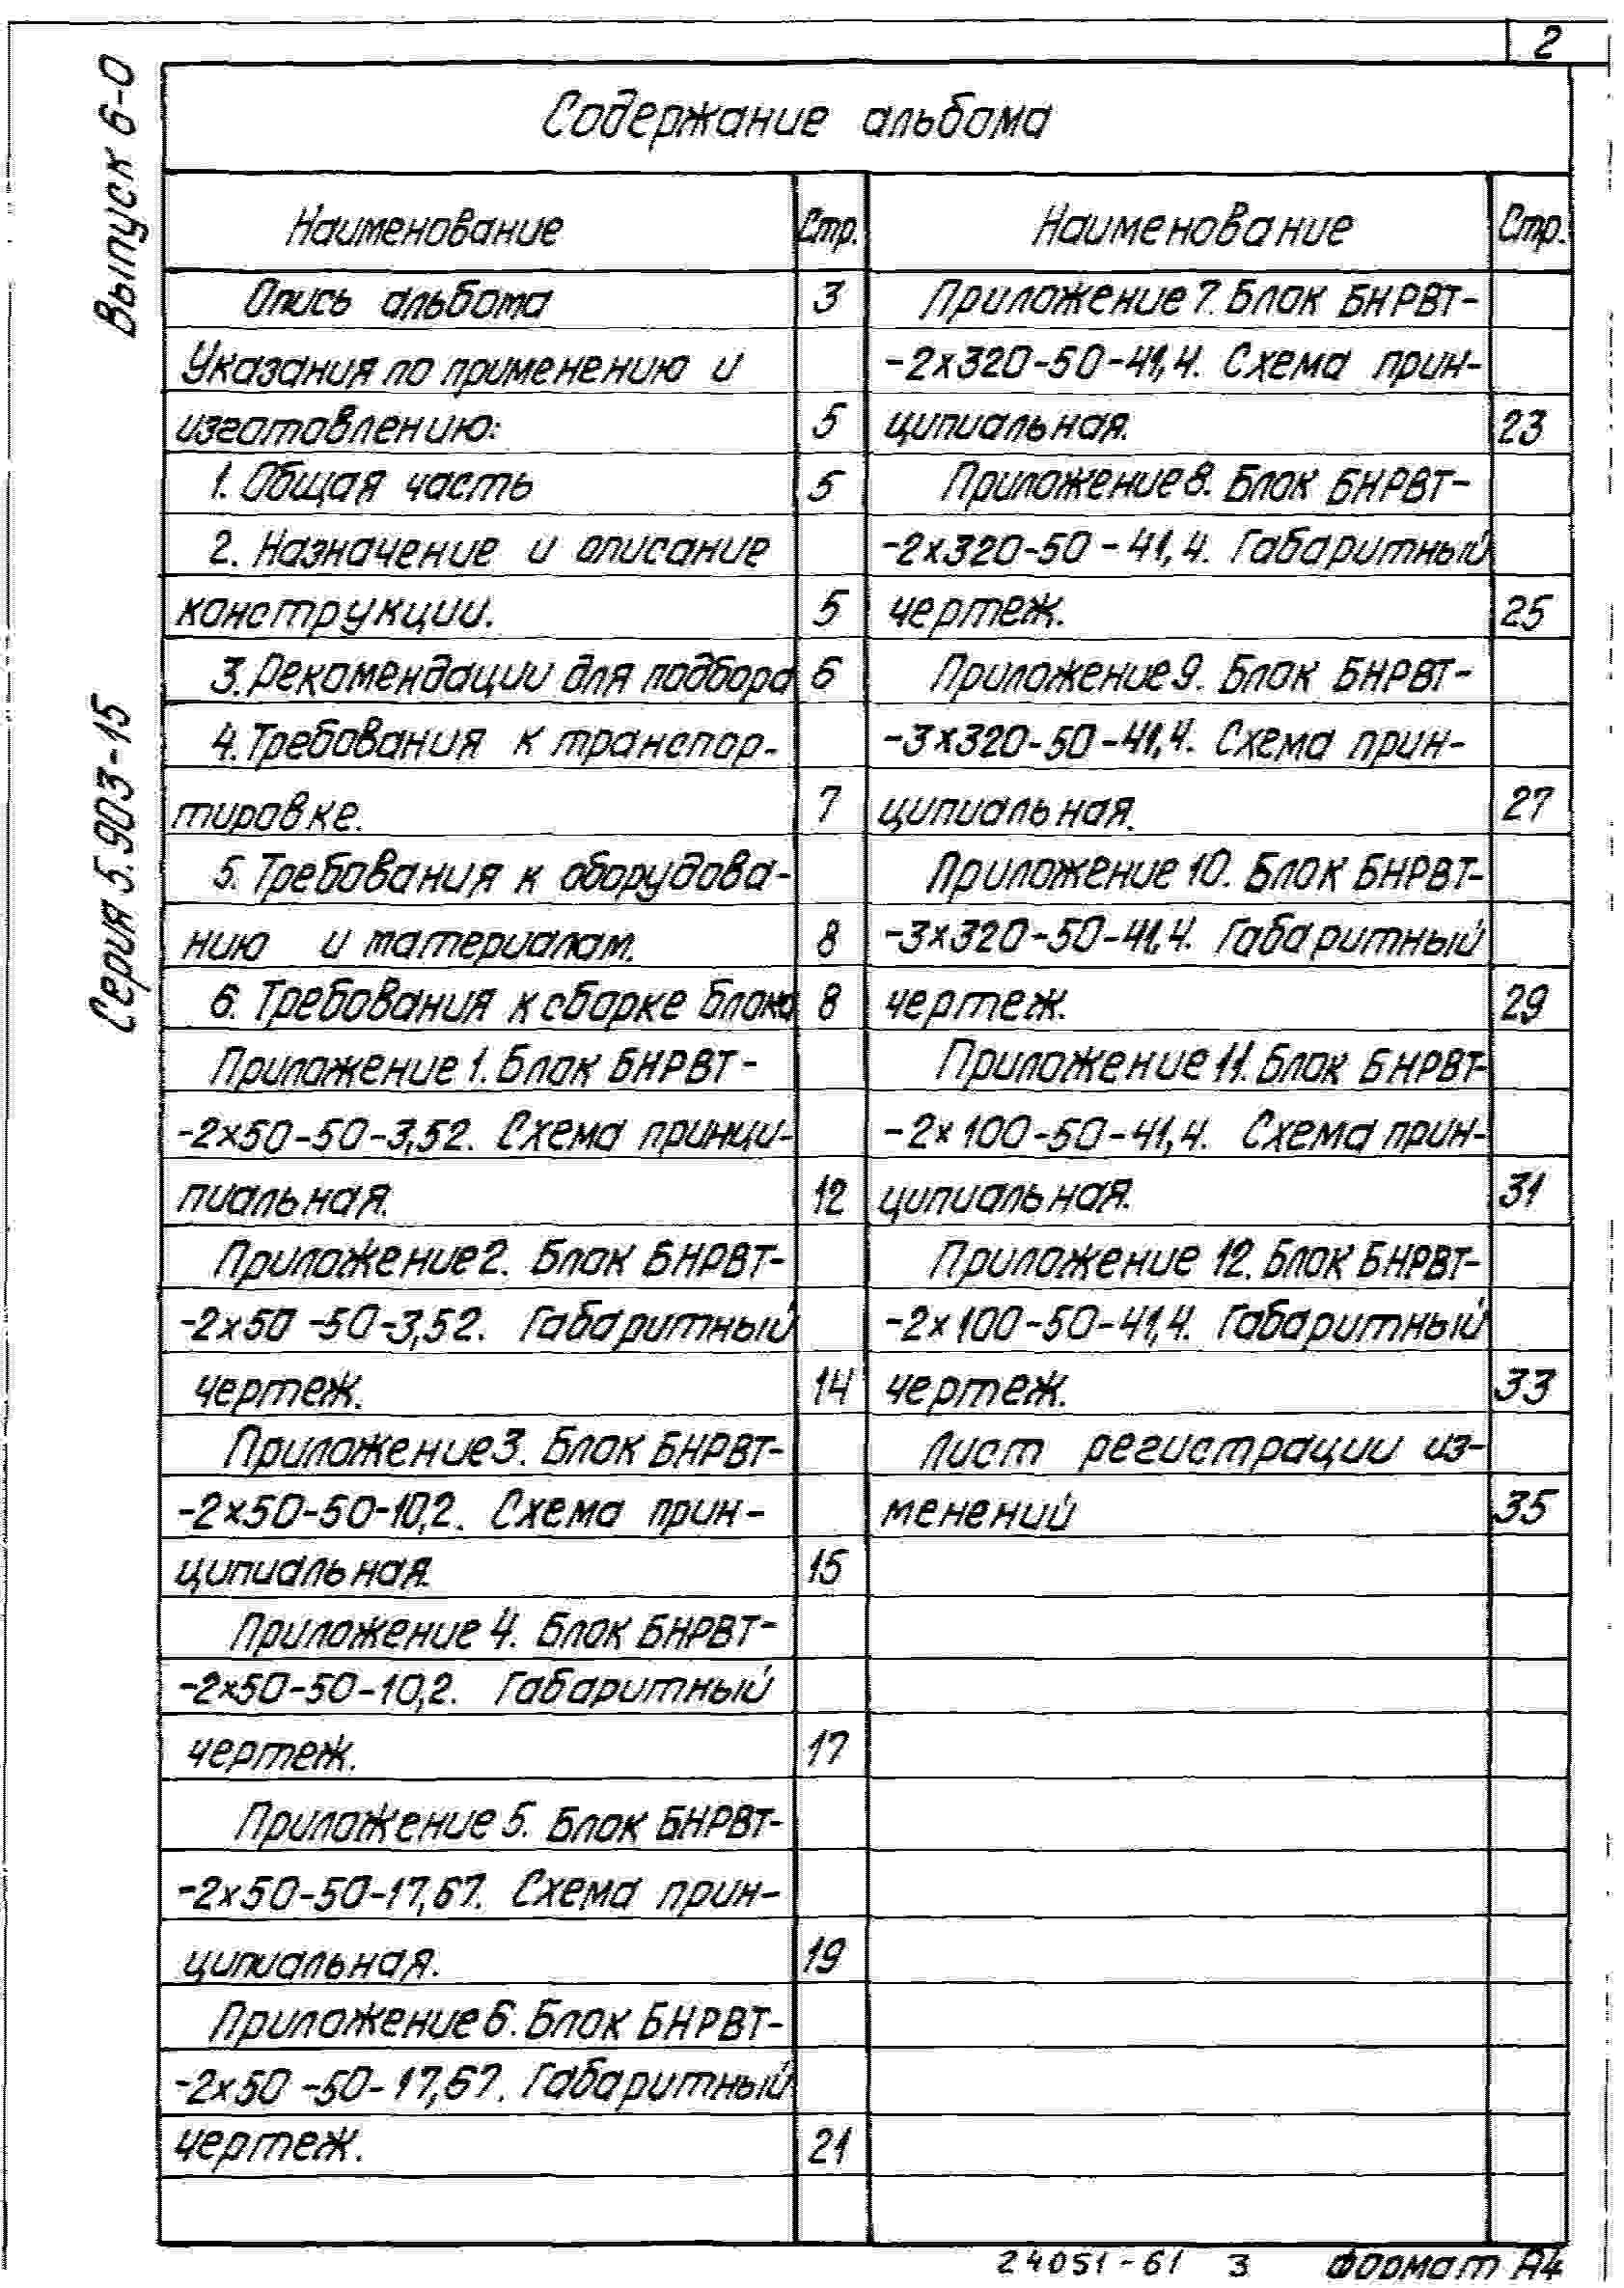 2
Выпуск 6-0
Серия 5.903-15
Содержание альбома
Наименование Стр.
Опись альбома 3
Указания по применению и
изготовлению: 5
1. Общая часть 5
2. Назначение и описание
конструкции. 5
3. Рекомендации для подбора 6
4. Требования к транспор-
тировке. 7
5. Требования к оборудова-
нию и материалам. 8
6. Требования к сборке блока 8
Приложение 1. Блок БНРВТ-
-2х50-50-3,52. Схема принци-
пиальная. 12
Приложение 2. Блок БНРВТ-
-2х50-50-3,52. Габаритный
чертеж. 14
Приложение 3. Блок БНРВТ-
-2х50-50-10,2. Схема прин-
ципиальная. 15
Приложение 4. Блок БНРВТ-
-2х50-50-10,2. Габаритный
чертеж. 17
Приложение 5. Блок БНРВТ-
-2х50-50-17,67. Схема прин-
ципиальная. 19
Приложение 6. Блок БНРВТ-
-2х50-50-17,67. Габаритный
чертеж. 21
Наименование Стр.
Приложение 7. Блок БНРВТ-
-2х320-50-41,4. Схема прин-
ципиальная. 23
Приложение 8. Блок БНРВТ-
-2х320-50-41,4. Габаритный
чертеж. 25
Приложение 9. Блок БНРВТ-
-3х320-50-41,4. Схема прин-
ципиальная. 27
Приложение 10. Блок БНРВТ-
-3х320-50-41,4. Габаритный
чертеж. 29
Приложение 11. Блок БНРВТ-
-2х100-50-41,4. Схема прин-
ципиальная. 31
Приложение 12. Блок БНРВТ-
-2х100-50-41,4. Габаритный
чертеж. 33
Лист регистрации из-
менений 35
24051-61 3 Формат А4